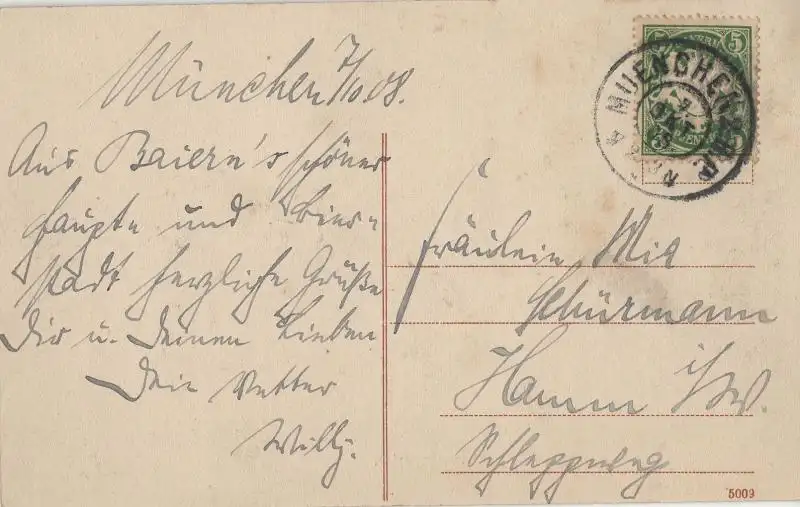 München 7/10 08.
Aus Baiern's schöner
Haupt= und Bier=
stadt herzliche Grüße
Dir u. Deinen Lieben
Dein Vetter
Willy.
5
5
MUENCHEN
OKT
Fräulein Mia
Schürmann
Hamm i/W.
Schleppweg
5009